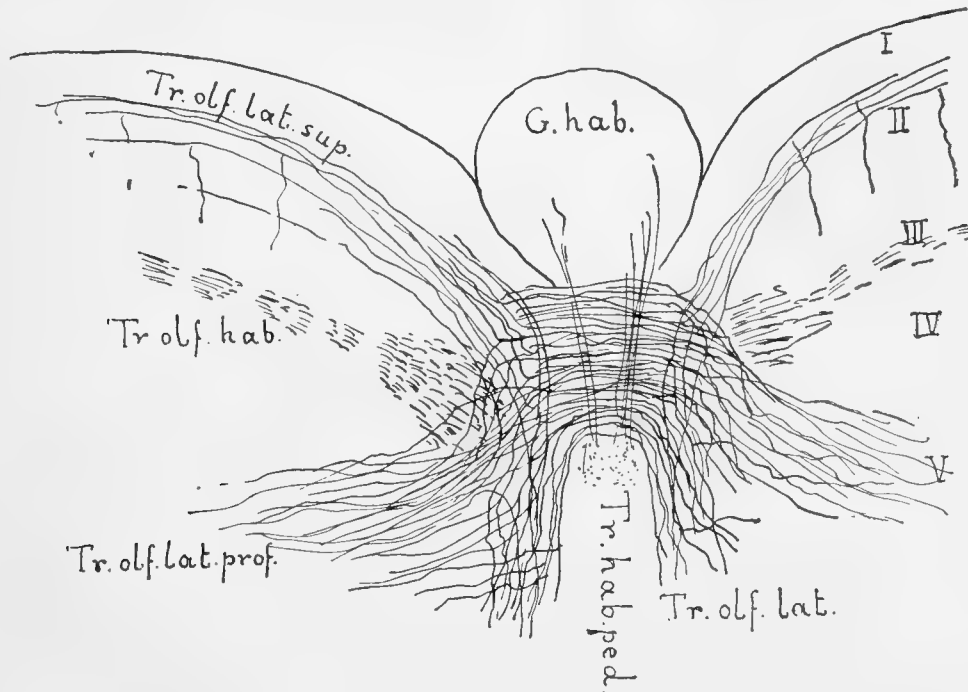 I
Tr. olf. lat. sup.
G. hab.
II
III
Tr olf. hab.
IV
V
Tr. olf. lat. prof.
Tr. hab. ped.
Tr. olf. lat.